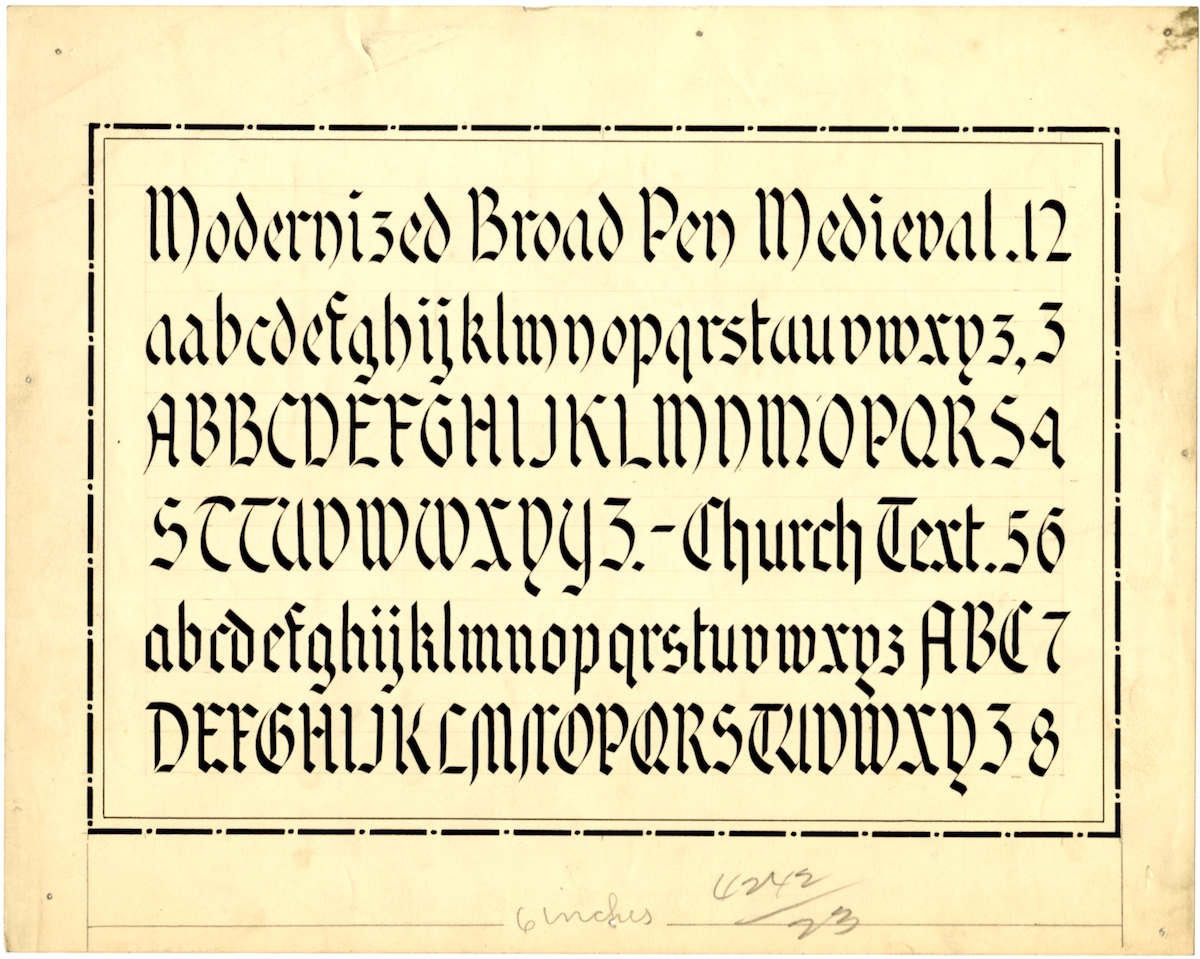 Modernized Broad Pen Medieval.12
aabcdefghijklmnopqrstauuvwxyz,3
ABBCDEFGHIJKLMNMOPQRS4
STTUVWWXYYZ.-Church Text.56
abcdefghijklmnopqrstuvwxyz ABC7
DEFGHIJKLMNOPQRSTUVWXYZ8
6 inches
4242
23